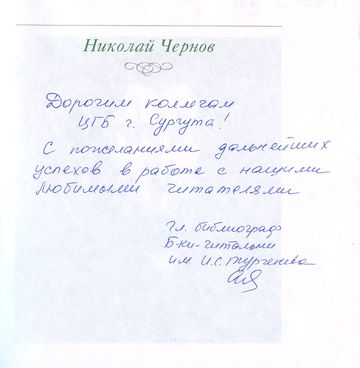 Николай Чернов
Дорогим коллегам
ЦГБ г. Сургута!
С пожеланиями дальнейших
успехов в работе с нашими
любимыми читателями
Гл. библиограф
Б-ки-читальни
им И.С. Тургенева